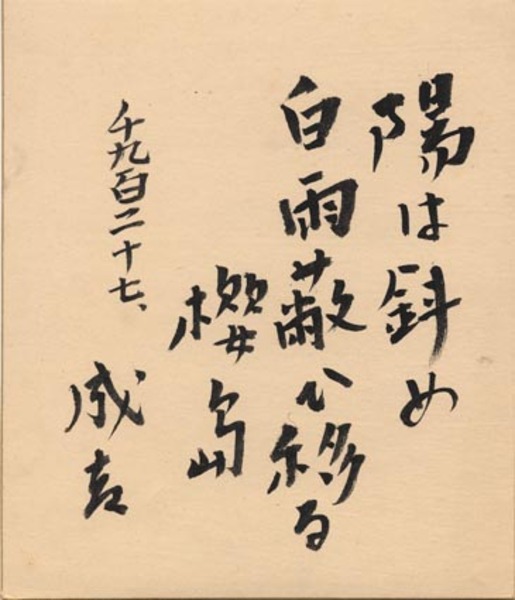 陽は斜め
白雨蔽ひ移る
櫻島
千九百二十七、
成吉